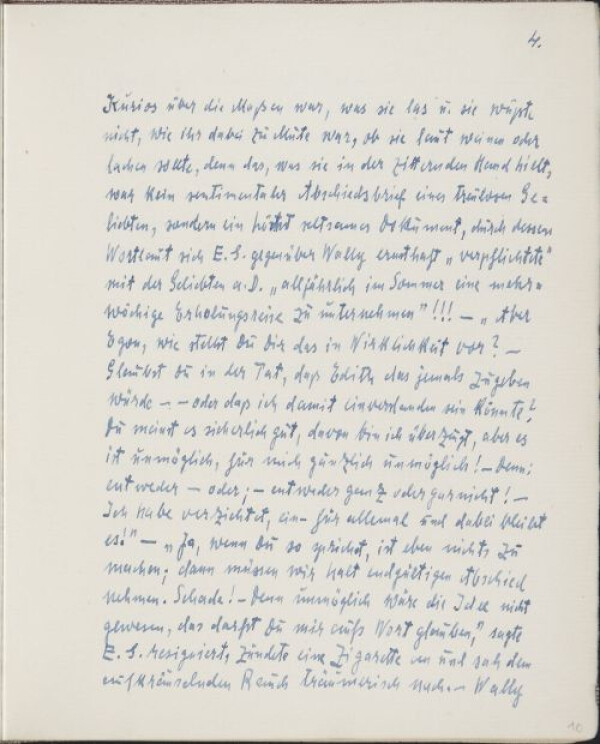 4.
Kurios über die Maßen war, was sie las u. sie wußte
nicht, wie ihr dabei zu Mute war, ob sie laut weinen oder
lachen sollte, denn das, was sie in der zitternden Hand hielt,
war kein sentimentaler Abschiedsbrief eines treulosen Ge=
liebten, sondern ein höchst seltsames Dokument, durch dessen
Wortlaut sich E. S. gegenüber Wally ernsthaft „verpflichtete"
mit der Geliebten a. D. „alljährlich im Sommer eine mehr=
wöchige Erholungsreise zu unternehmen"!!! — „Aber
Egon, wie stellst Du Dir das in Wirklichkeit vor? —
Glaubst Du in der Tat, daß Edith das jemals zugeben
würde — — oder daß ich damit einverstanden sein könnte?
Du meinst es sicherlich gut, davon bin ich überzeugt, aber es
ist unmöglich, für mich gänzlich unmöglich! — Denn:
entweder — oder; — entweder ganz oder gar nicht! —
Ich habe verzichtet, ein- für allemal und dabei bleibt
es!" — „Ja, wenn Du so sprichst, ist eben nichts zu
machen; dann müssen wir halt endgültigen Abschied
nehmen. Schade! — Denn unmöglich wäre die Idee nicht
gewesen, das darfst Du mir aufs Wort glauben," sagte
E. S. resigniert, zündete eine Zigarette an und sah dem
aufkräuselnden Rauch träumerisch nach. — Wally
10